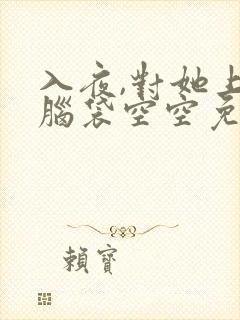 入夜,對她上
腦袋空空免
賴寶